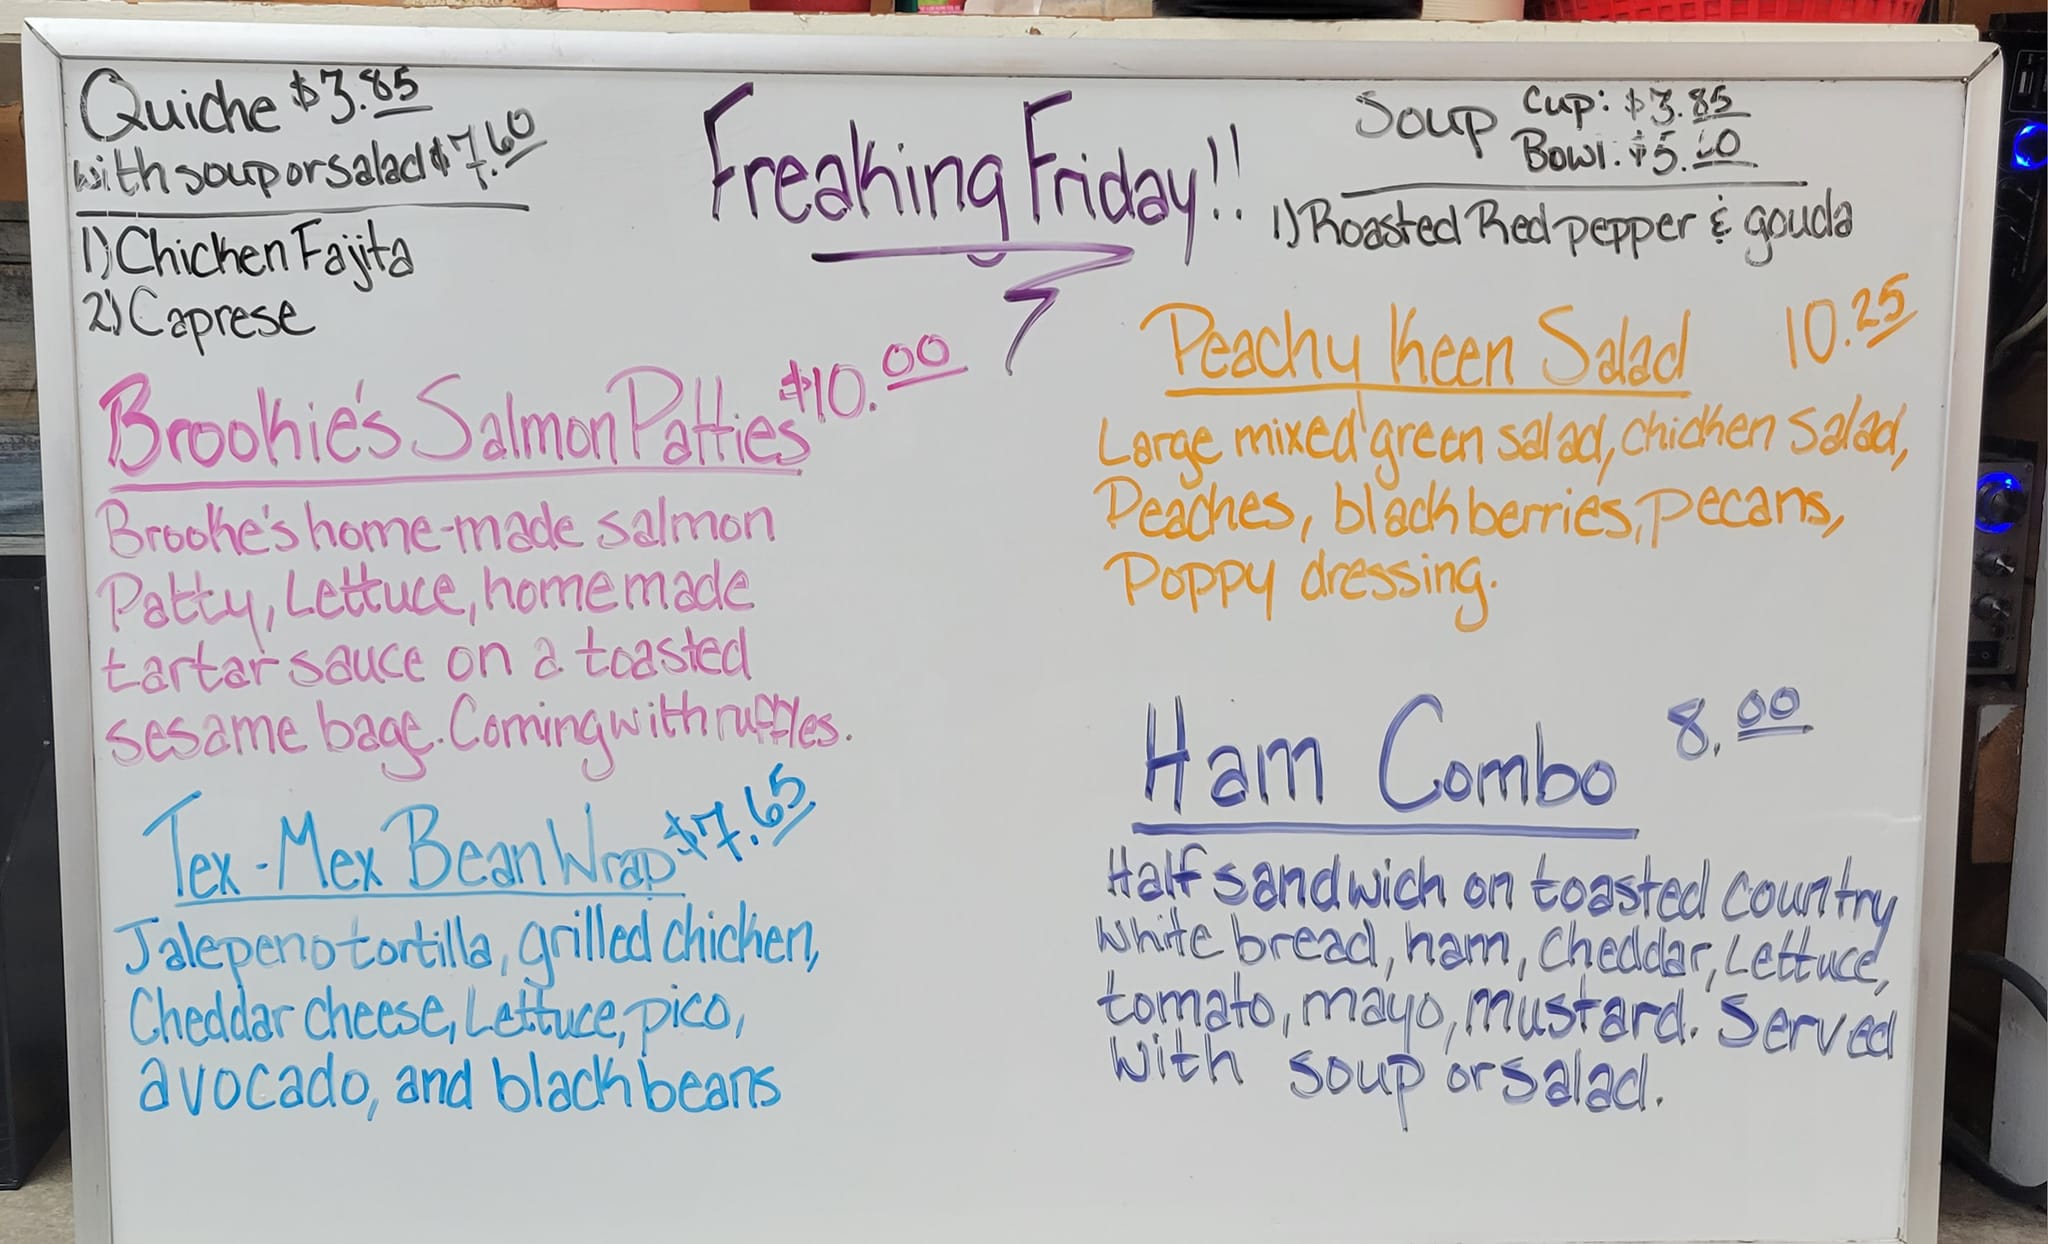 Quiche $3.85
with soup or salad $7.60
1) Chicken Fajita
2) Caprese
Freaking Friday!!
Soup Cup: $3.85
Bowl: $5.60
1) Roasted Red pepper & gouda
Brookie's Salmon Patties $10.00
Brooke's home-made salmon
Patty, Lettuce, homemade
tartar sauce on a toasted
sesame bage. Coming with ruffles.
Tex-Mex Bean Wrap $7.65
Jalepeno tortilla, grilled chicken,
Cheddar cheese, Lettuce, pico,
avocado, and black beans
Peachy Keen Salad 10.25
Large mixed green salad, chicken salad,
Peaches, blackberries, pecans,
Poppy dressing.
Ham Combo 8.00
Half sandwich on toasted country
white bread, ham, cheddar, Lettuce,
tomato, mayo, mustard. Served
with soup or salad.